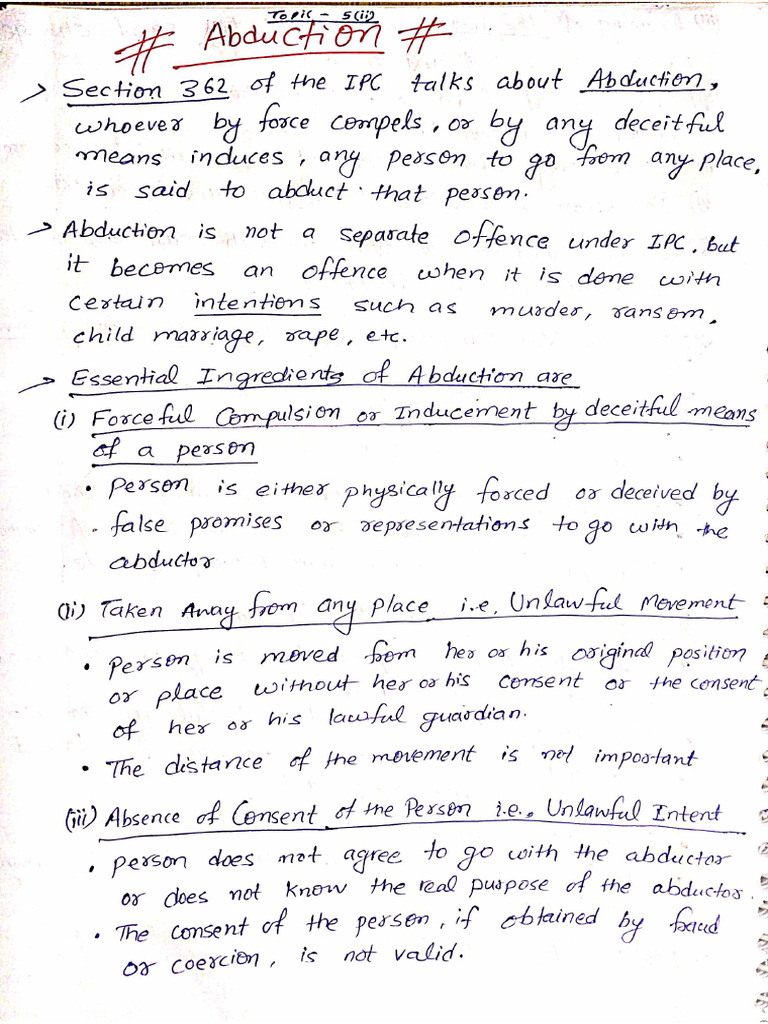 Topic - 5(ii)
# Abduction #
→ Section 362 of the IPC talks about Abduction,
whoever by force compels, or by any deceitful
means induces, any person to go from any place,
is said to abduct that person.
→ Abduction is not a separate offence under IPC, but
it becomes an offence when it is done with
certain intentions such as murder, ransom,
child marriage, rape, etc.
→ Essential Ingredients of Abduction are
(i) Forceful Compulsion or Inducement by deceitful means
of a person
• Person is either physically forced or deceived by
false promises or representations to go with the
abductor
(ii) Taken Away from any place i.e, Unlawful Movement
• Person is moved from her or his original position
or place without her or his consent or the consent
of her or his lawful guardian.
• The distance of the movement is not important
(iii) Absence of Consent of the Person i.e., Unlawful Intent
• person does not agree to go with the abductor
or does not know the real purpose of the abductor.
• The consent of the person, if obtained by fraud
or coercion, is not valid.